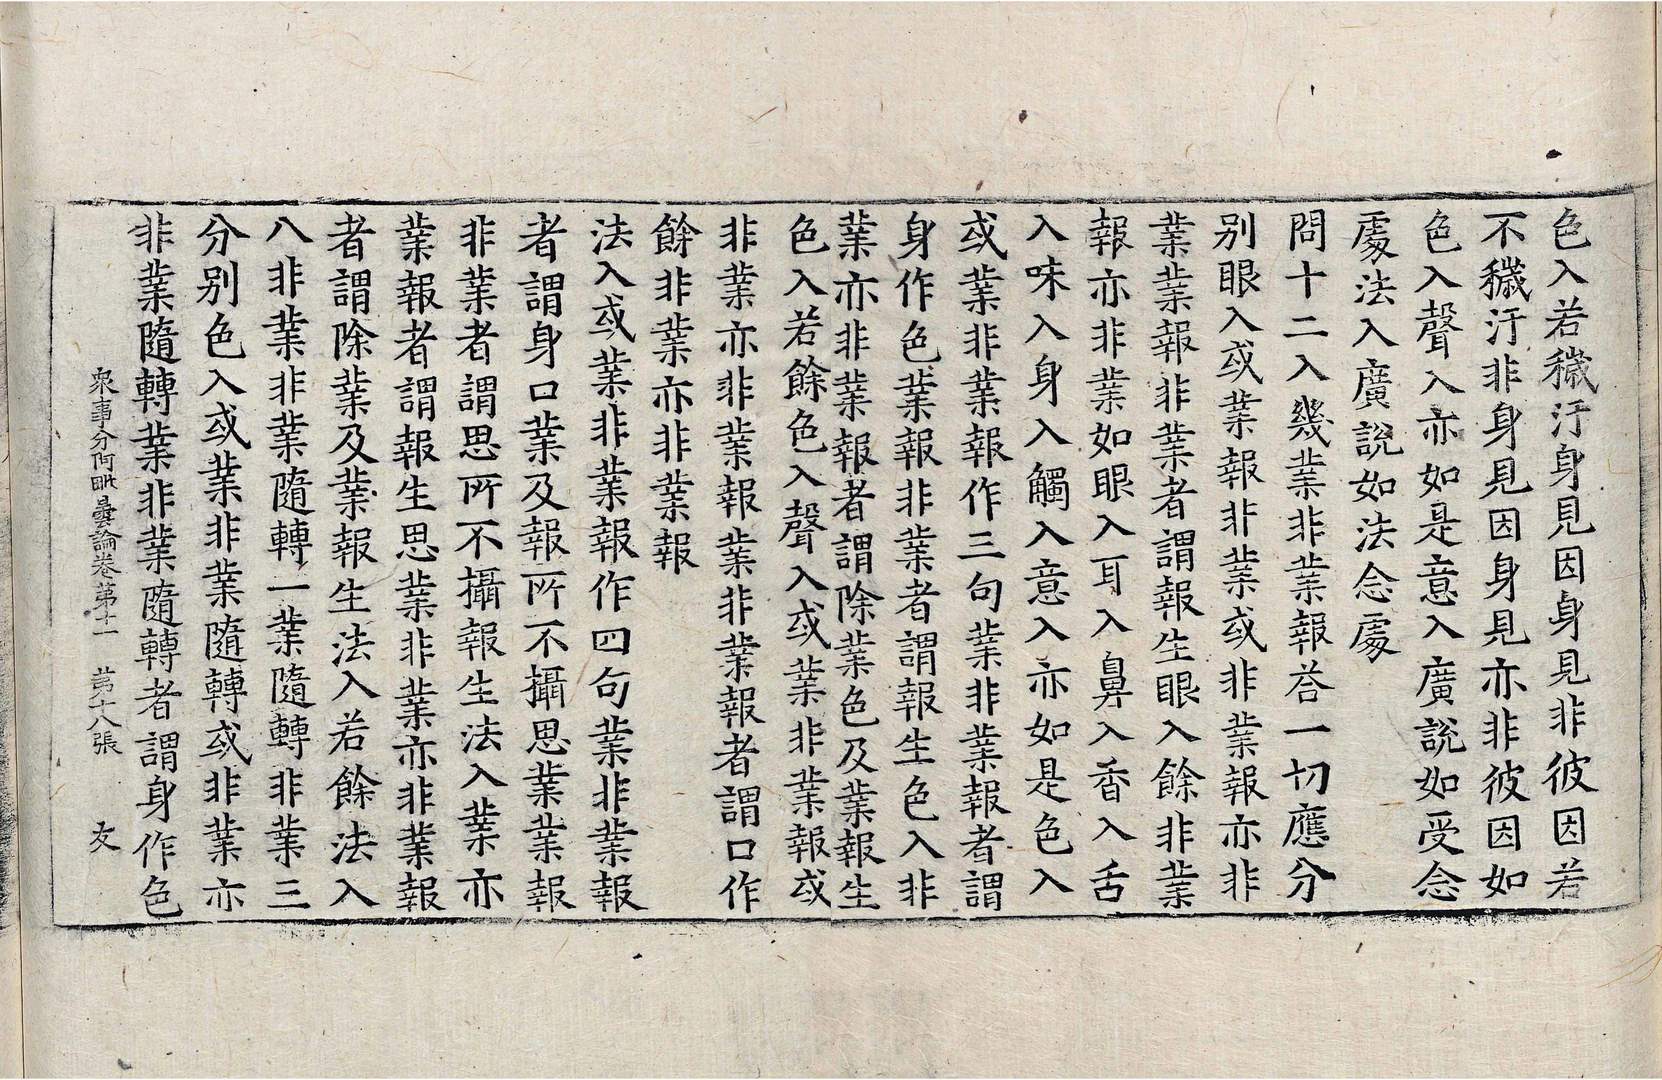 色入若穢汙身見因身見非彼因若
不穢汙非身見因身見亦非彼因如
色入聲入亦如是意入廣說如受念
處法入廣說如法念處
問十二入幾業非業報荅一切應分
別眼入或業報非業或非業報亦非
業業報非業者謂報生眼入餘非業
報亦非業如眼入耳入鼻入香入舌
入味入身入觸入意入亦如是色入
或業非業報作三句業非業報者謂
身作色業報非業者謂報生色入非
業亦非業報者謂除業色及業報生
色入若餘色入聲入或業非業報或
非業亦非業報業非業報者謂口作
餘非業亦非業報
法入或業非業報作四句業非業報
者謂身口業及報所不攝思業業報
非業者謂思所不攝報生法入業亦
業報者謂報生思業非業亦非業報
者謂除業及業報生法入若餘法入
八非業非業隨轉一業隨轉非業三
分別色入或業非業隨轉或非業亦
非業隨轉業非業隨轉者謂身作色
衆事分阿毗曇論卷第十一 第十八張 友